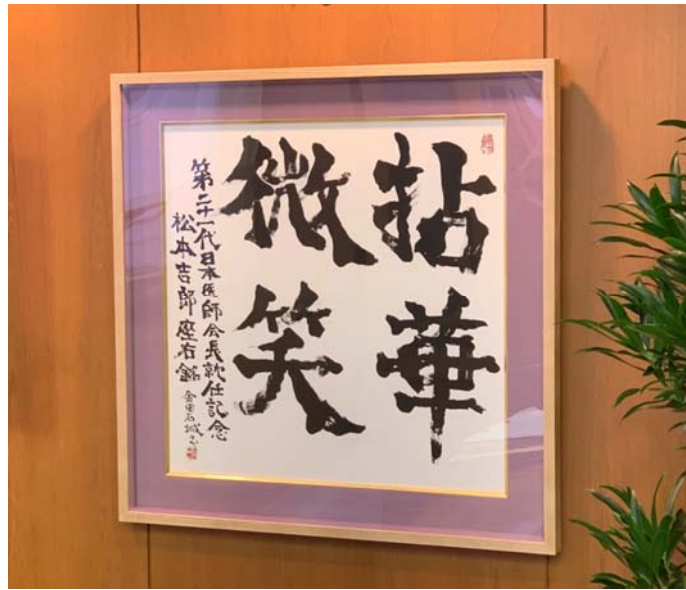 拈華
微笑
第二十一代日本医師会長就任記念
松本吉郎座右銘
金田石城書